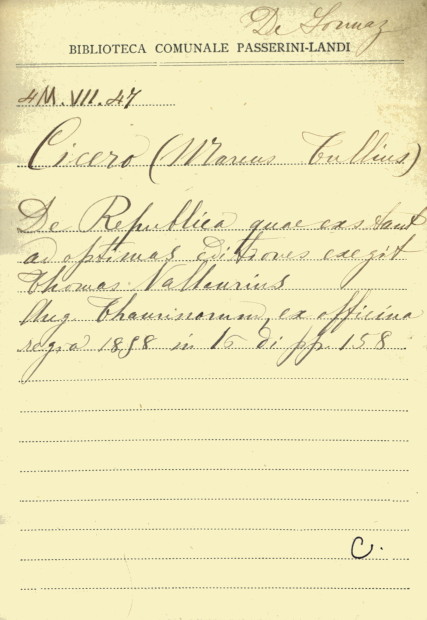 De Sonnaz
BIBLIOTECA COMUNALE PASSERINI-LANDI
4M.VII.47
Cicero (Marcus Tullius)
De Republica quae exstant
ad optimas editiones exegit
Thomas Vallaurius
Aug. Thaurinorum, ex officina
regia 1898 in 16 di pp. 158
C.